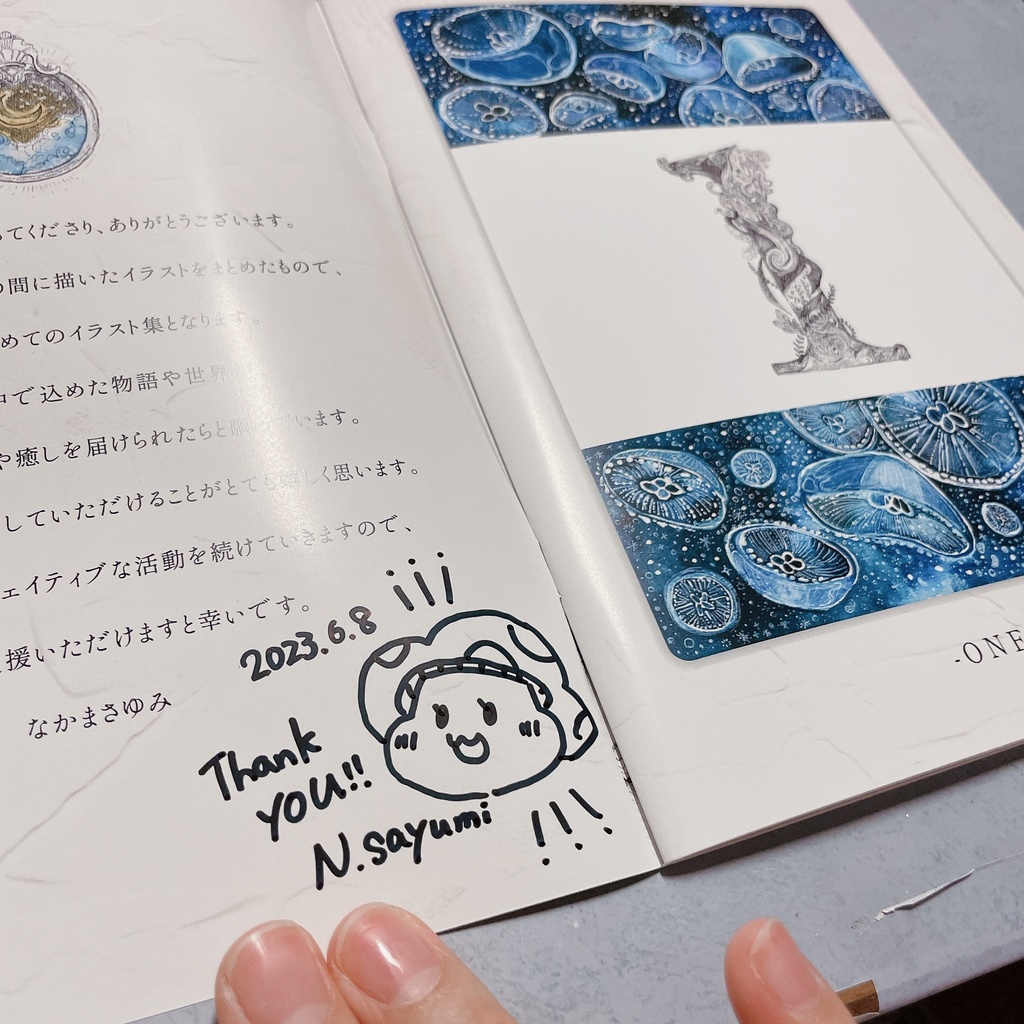 てくださり、ありがとうございます。
間に描いたイラストをまとめたもので、
めてのイラスト集となります。
で込めた物語や世界
や癒しを届けられたらと願っています。
していただけることがとても嬉しく思います。
ェイティブな活動を続けていきますので、
援いただけますと幸いです。
なかまさゆみ
2023.6.8
Thank
YOU!!
N.sayumi
1
-ONE